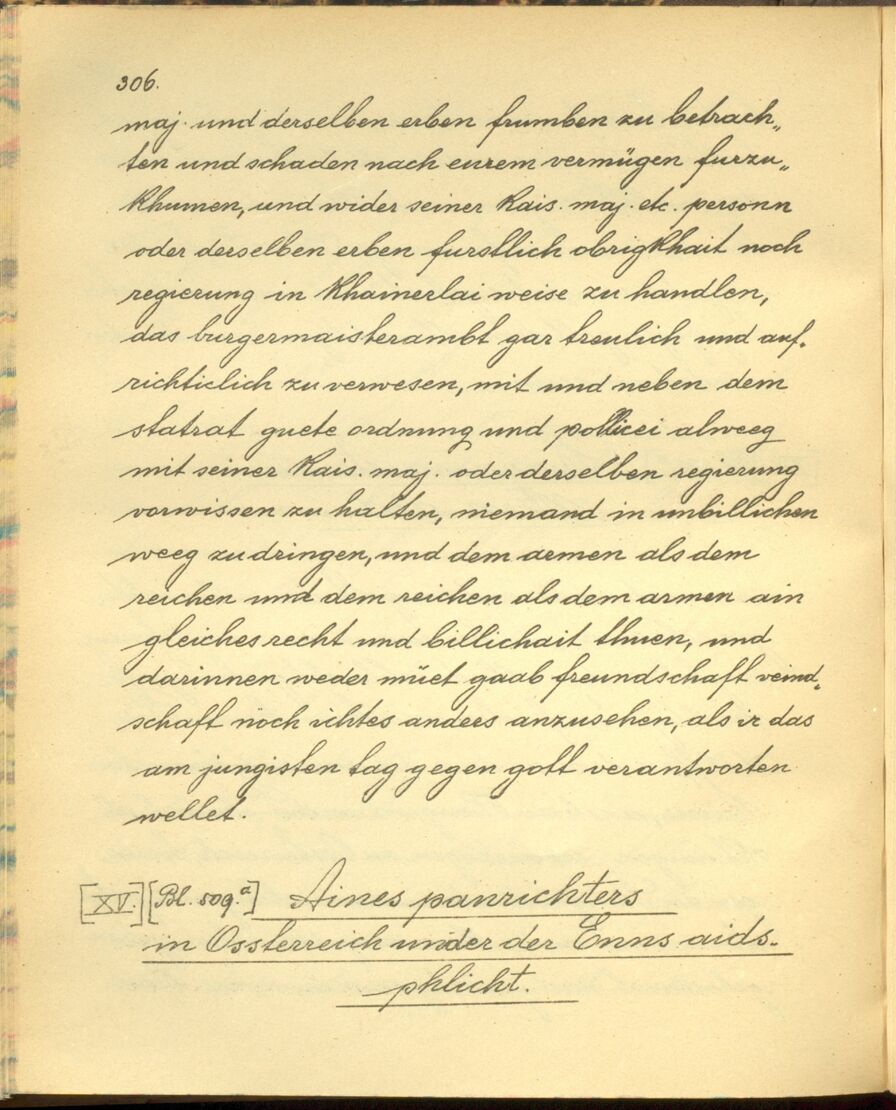 306.
maj. und derselben erben frumben zu betrach„
ten und schaden nach eurem vermügen furzu„
khumen, und wider seiner kais. maj. etc. personn
oder derselben erben furstlich obrigkhait noch
regierung in khainerlai weise zu handlen,
das burgermaisterambt gar treulich und auf„
richticlich zu verwesen, mit und neben dem
statrat guete ordnung und pollicei alweeg
mit seiner kais. maj. oder derselben regierung
vorwissen zu halten, niemand in unbillichen
weeg zu dringen, und dem armen als dem
reichen und dem reichen als dem armen ain
gleiches recht und billichait thuen, und
darinnen weder müet gaab freundschaft veind„
schaft noch ichtes anders anzusehen, als ir das
am jungisten tag gegen gott verantworten
wellet.
[XV.] [Bl. 509.a] Aines panrichters
in Ossterreich under der Enns aids-
phlicht.